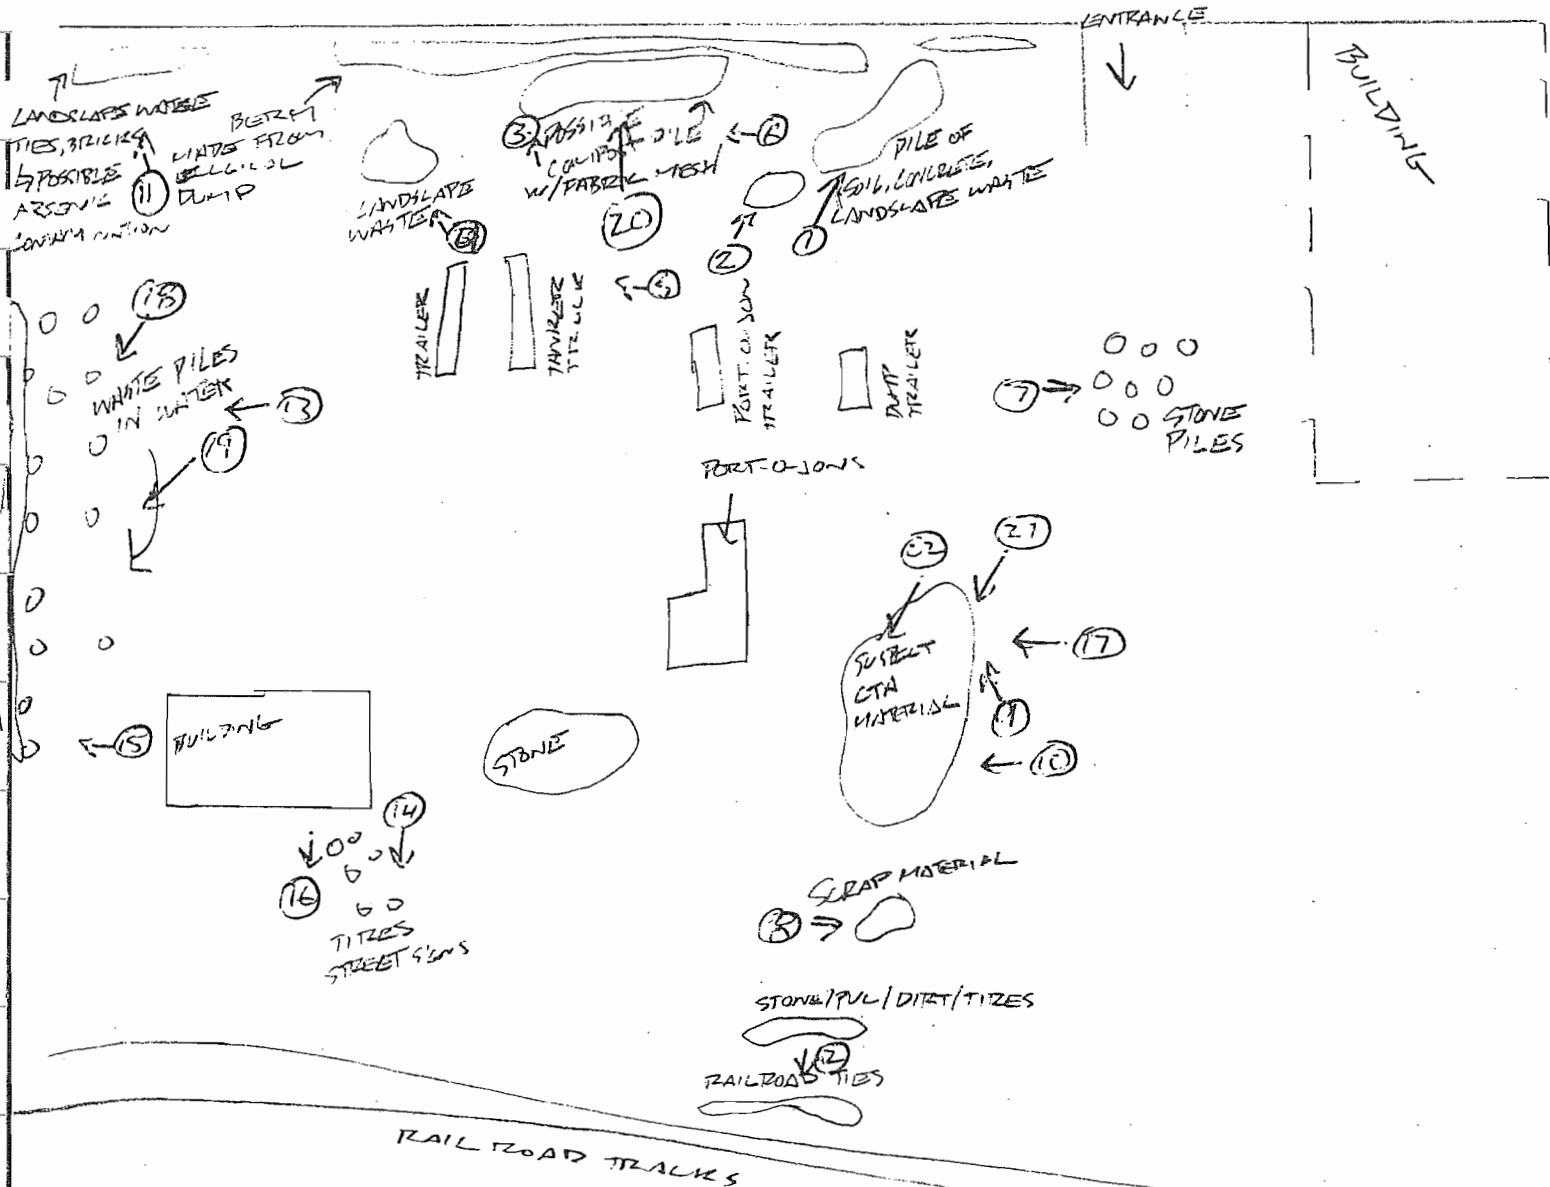 ENTRANCE
BUILDING
LANDSCAPE WASTE
TIES, BRICKS
↳ POSSIBLE
ARSENIC
CONTAMINATION
11
BERM
MADE FROM
ILLEGAL
DUMP
LANDSCAPE
WASTE
3
POSSIBLE
COMPOST PILE
W/FABRIC MESH
6
20
2
1
PILE OF
SOIL, CONCRETE,
LANDSCAPE WASTE
TRAILER
TANKER
TRUCK
5
PORT-O-JON
TRAILER
DUMP
TRAILER
7
STONE
PILES
18
WASTE PILES
IN WATER
13
19
PORT-O-JONS
22
21
SUSPECT
CTA
MATERIAL
17
10
15
BUILDING
STONE
14
16
TIRES
STREET SIGNS
SCRAP MATERIAL
8
STONE/PVC/DIRT/TIRES
12
RAILROAD TIES
RAILROAD TRACKS